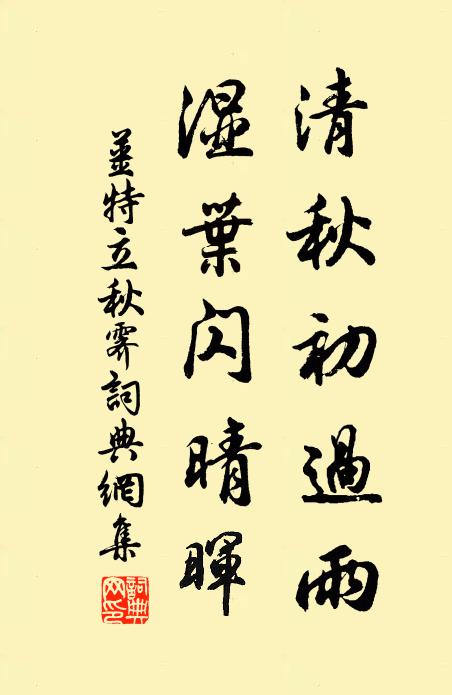 清秋初過雨
濕葉閃晴暉
姜特立秋霽詞典網集
詞典網印